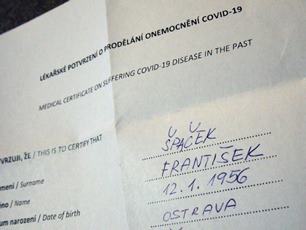 LÉKAŘSKÉ POTVRZENÍ O PRODĚLÁNÍ ONEMOCNĚNÍ COVID-19
MEDICAL CERTIFICATE ON SUFFERING COVID-19 DISEASE IN THE PAST
VRZUJI, ŽE / THIS IS TO CERTIFY THAT
mení / Surname ŠPAČEK
no / Name FRANTIŠEK
um narození / Date of birth 12. 1. 1956
OSTRAVA